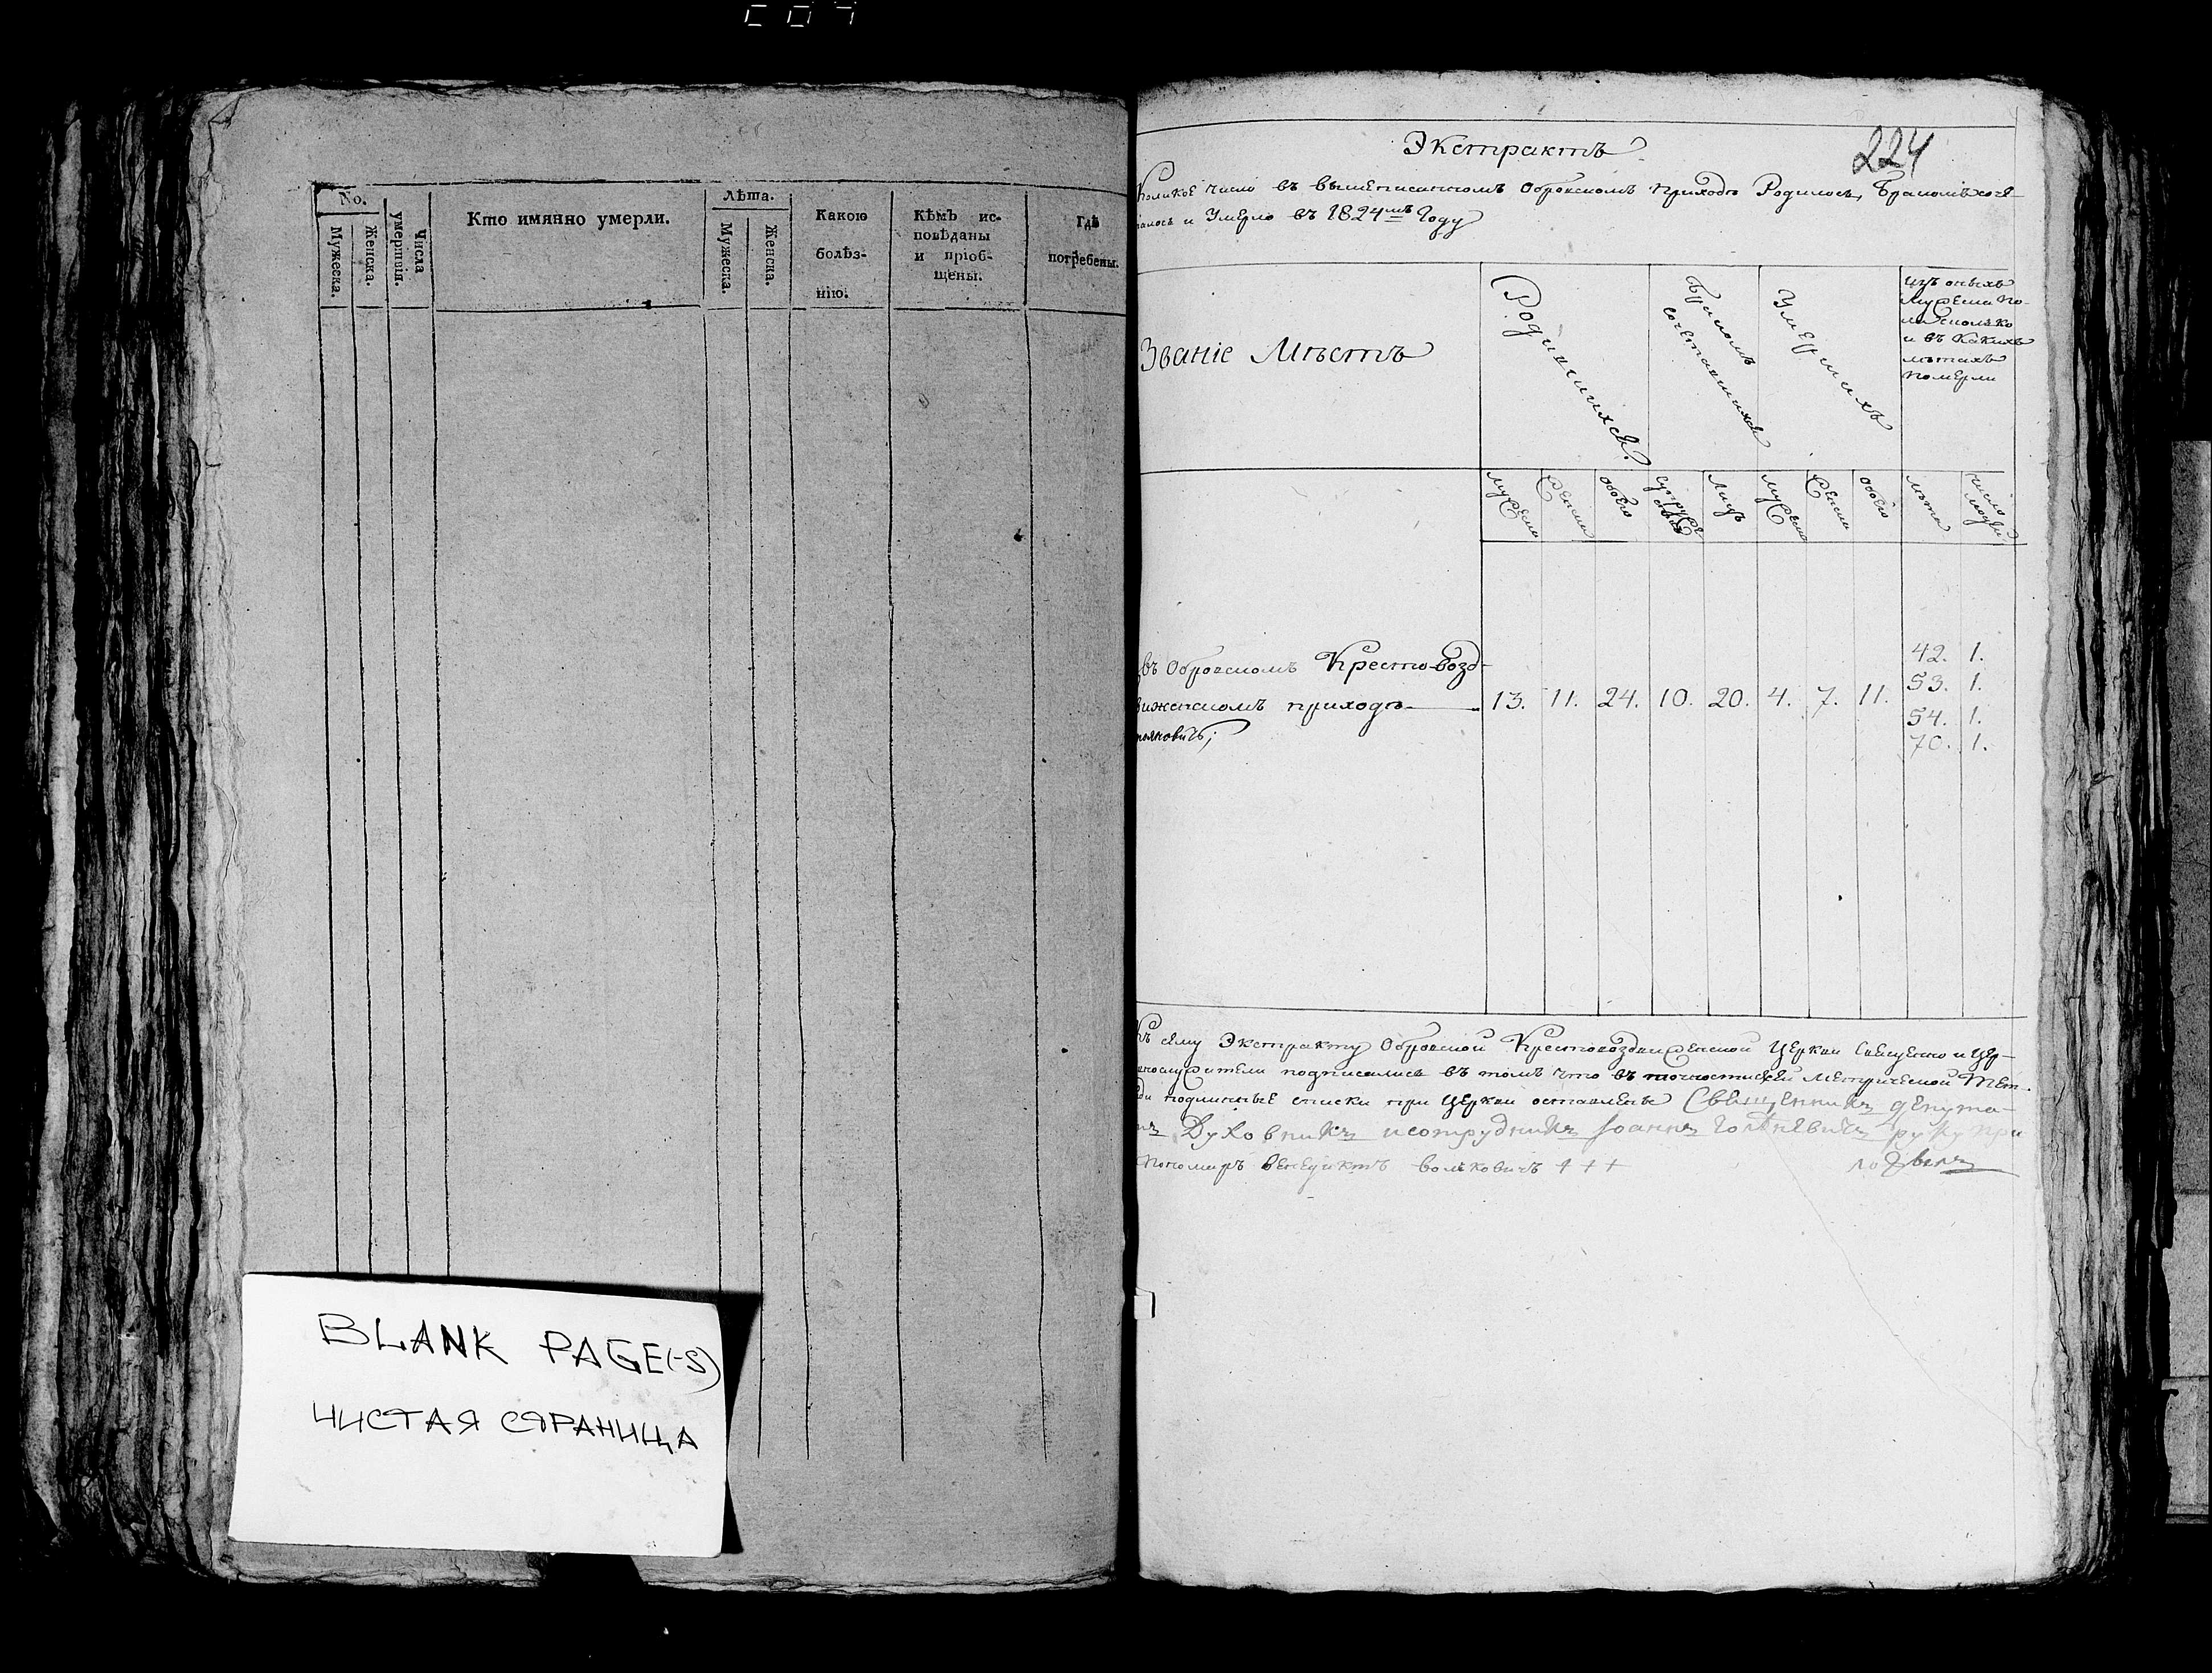 No.
Мужеска.
Женска.
Числа
умертвія.
Кто имянно умерли.
Лѣта.
Мужеска.
Женска.
Какою
болѣз-
нію.
Кѣмъ ис-
повѣданы
и пріоб-
щены.
Гдѣ
погребены.
BLANK PAGE(-S)
ЧИСТАЯ СТРАНИЦА
224
Экстрактъ
Коликое число въ вышеписанномъ Обровскомъ приходѣ Родилось, Бракомъ соче-
талось и Умерло въ 1824мъ Году
Званіе Мѣстъ
Родившихся.
Бракомъ
сочетавшихся
Умершихъ
изъ оныхъ
Мужеска по-
ла сколько
и въ какихъ
лѣтахъ
померли
мужеска
женска
обоего
супружествъ
лицъ
мужеска
женска
обоего
лѣта
число
людей
въ Обровскомъ Кресто-Возд-
виженскомъ приходѣ
13. 11. 24. 10. 20. 4. 7. 11.
42. 1.
53. 1.
54. 1.
70. 1.
Къ сему Экстракту Обровской Крестовоздвиженской Церкви Священно и Цер-
ковнослужители подписались въ томъ что въ точности сей Метрической Тет-
ради подлинные списки при Церкви оставлены Священникъ депута-
тъ Духовникъ и сотрудникъ Іоаннъ руку при
ложилъ
Пономаръ Венедиктъ Волковичъ + + +